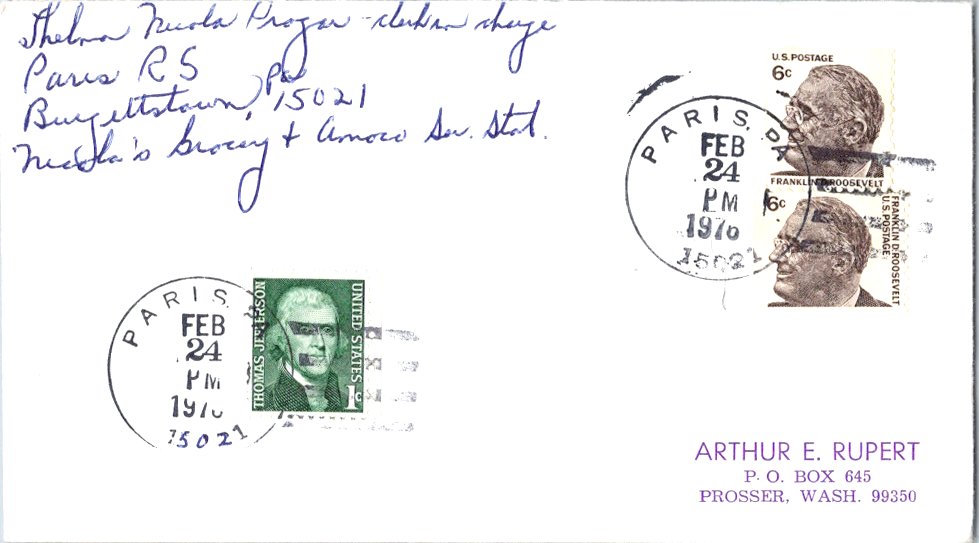 Thelma Nicola Progar - clerk in charge
Paris R S
Burgettstown, Pa
15021
Nicola's Grocery & Amoco Ser. Stat.
U.S. POSTAGE
6c
PARIS, PA
FEB
24
PM
1976
15021
FRANKLIN D. ROOSEVELT
6c
FRANKLIN D. ROOSEVELT
U.S. POSTAGE
PARIS,
FEB
24
PM
197
15021
THOMAS JEFFERSON
UNITED STATES
1c
ARTHUR E. RUPERT
P. O. BOX 645
PROSSER, WASH. 99350